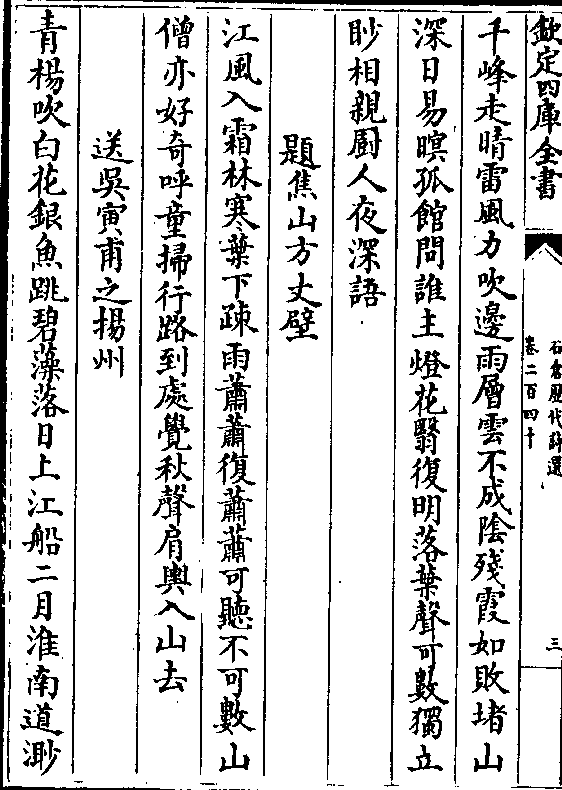 欽定四庫全書
石倉歷代詩選
卷二百四十
三
千峰走晴雷風力吹邊雨層雲不成陰殘霞如敗堵山
深日易暝孤館問誰主燈花翳復明落葉聲可數獨立
眇相親厨人夜深語
題焦山方丈壁
江風入霜林寒葉下疎雨蕭蕭復蕭蕭可聽不可數山
僧亦好奇呼童掃行路到處覺秋聲肩輿入山去
送吳寅甫之揚州
青楊吹白花銀魚跳碧藻落日上江船二月淮南道渺